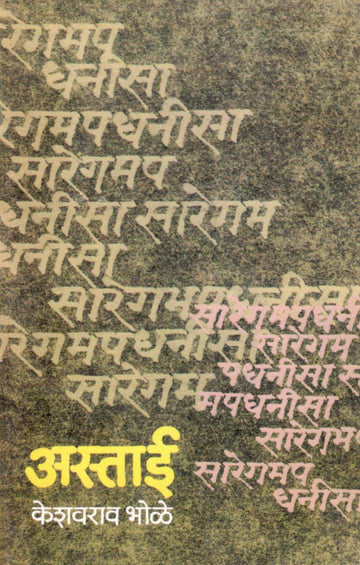 रेगमप
धनीसा
रेगमपधनीसा
सारेगमप
धनीसा सारेगम
धनीसा
सारेगमपधनीसा
सारेगमपधनी
सारेगमपधनीसा
सारेगम
पधनीसा
सारेगम
मपधनीसा
सारेगम
सारेगमप
धनीसा
अस्ताई
केशवराव भोळे